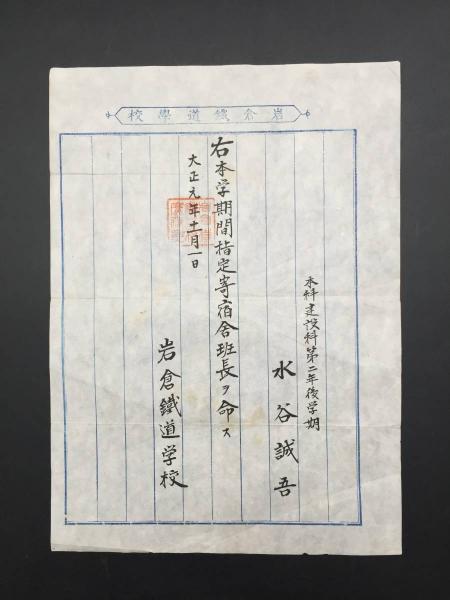 岩倉鐵道學校
本科建設科第二年後学期
水谷誠吾
右本学期間指定寄宿舎班長ヲ命ス
大正元年十一月一日
岩倉鐵道学校